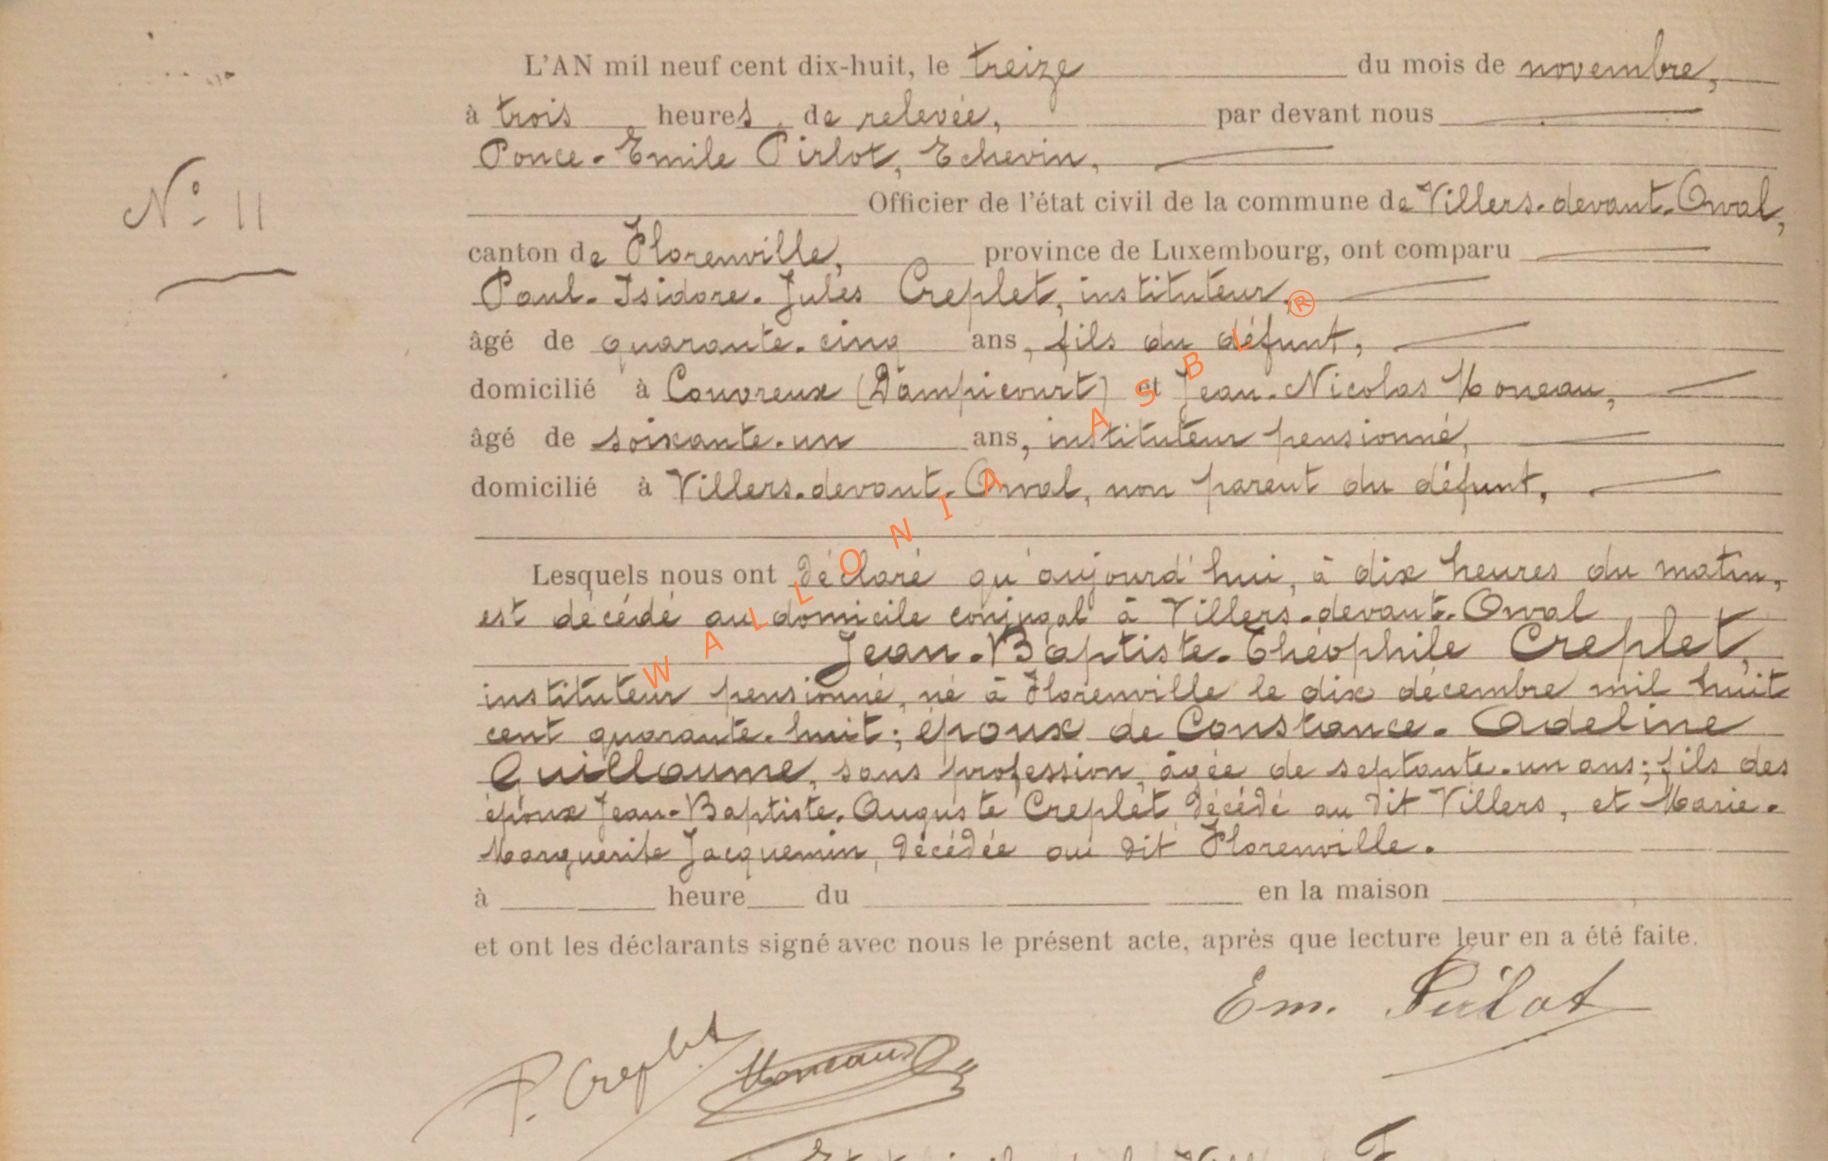 L'AN mil neuf cent dix-huit, le treize du mois de novembre,
à trois heures de relevée, par devant nous
Ponce-Emile Pirlot, Echevin,
N° 11
Officier de l'état civil de la commune de Villers-devant-Orval,
canton de Florenville, province de Luxembourg, ont comparu
Paul-Isidore-Jules Creplet, instituteur,
âgé de quarante-cinq ans, fils du défunt,
domicilié à Couvreux (Dampicourt) et Jean-Nicolas Moneau,
âgé de soixante-un ans, instituteur pensionné,
domicilié à Villers-devant-Orval, non parent du défunt,
Lesquels nous ont déclaré qu'aujourd'hui, à dix heures du matin,
est décédé au domicile conjugal à Villers-devant-Orval
Jean-Baptiste-Théophile Creplet,
instituteur pensionné, né à Florenville le dix décembre mil huit
cent quarante-huit; époux de Constance-Adeline
Guillaume, sans profession, âgée de septante-un ans; fils des
époux Jean-Baptiste-Auguste Creplet décédé au dit Villers, et Marie-
Marguerite Jacquemin, décédée au dit Florenville.
à heure du en la maison
et ont les déclarants signé avec nous le présent acte, après que lecture leur en a été faite.
Em. Pirlot
P. Creplet Moneau
WALLONIA ASBL ®